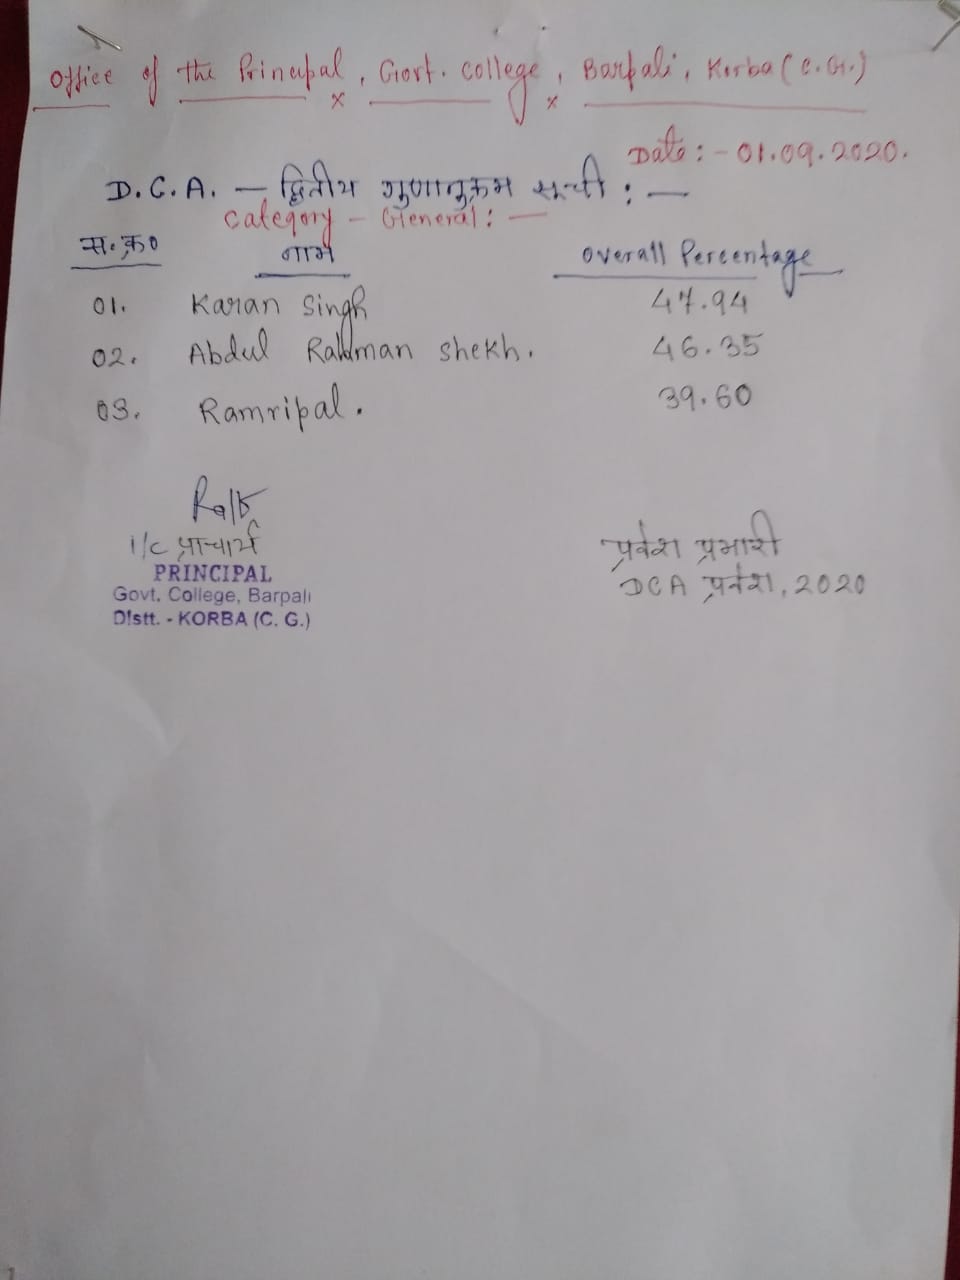 Office of the Principal, Govt. college, Barpali, Korba (C.G.)
Date: - 01.09.2020.
D.C.A. — द्वितीय गुणानुक्रम सूची : —
Category - General: —
स.क्र० नाम Overall Percentage
01. Karan Singh 47.94
02. Abdul Rahman Shekh. 46.35
03. Ramripal. 39.60
i/c प्राचार्य
PRINCIPAL
Govt. College, Barpali
Distt. - KORBA (C. G.)
प्रवेश प्रभारी
DCA प्रवेश, 2020